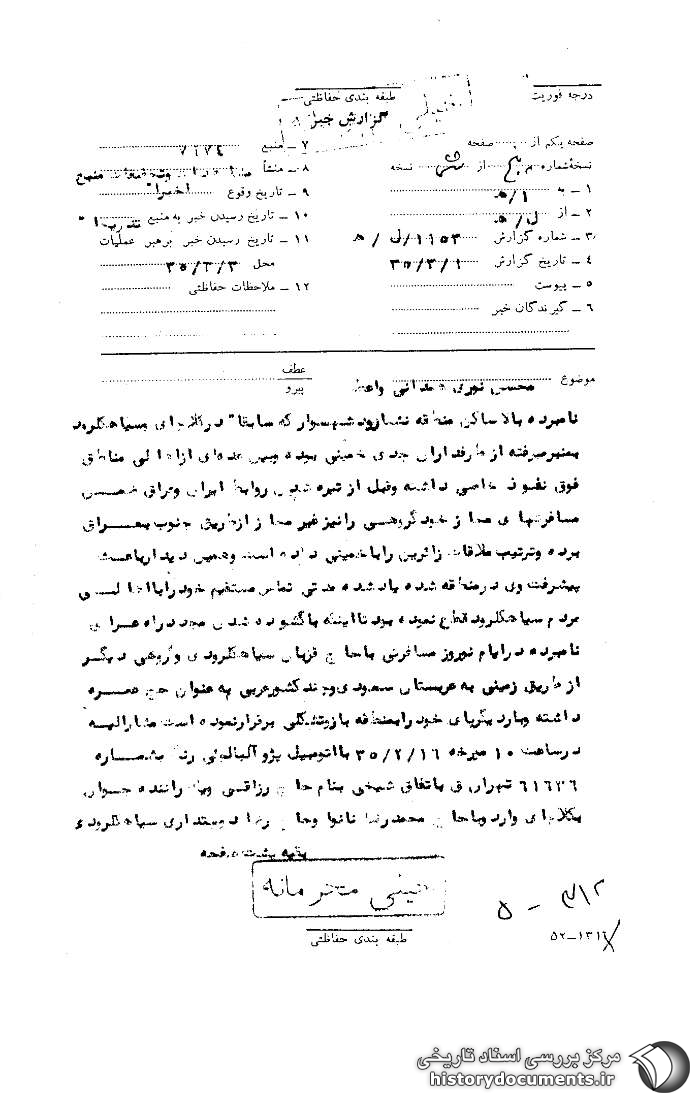 درجه فوریت
طبقه بندی حفاظتی
خیلی
گزارش خبر
صفحه یکم از صفحه
نسخهٔ شماره پنج از شش نسخه
۱ – به ۱/ه
۲ – از ل/ه
۳ – شماره گزارش ۱۱۵۳/ل/ه
۴ – تاریخ گزارش ۳۵/۳/۱
۵ – پیوست
۶ – گیرندگان خبر
۷ – منبع ۷۱۷۴
۸ – منشأ
۹ – تاریخ وقوع اخیرا"
۱۰ – تاریخ رسیدن خبر به منبع
۱۱ – تاریخ رسیدن خبر برهبر عملیات
محل ۳۵/۳/۳
۱۲ – ملاحظات حفاظتی
موضوع محسن نوری همدانی واعظ
عطف
پیرو
نامبرده بالا ساکن منطقه نشتارود شهسوار که سابقا" در کلاچای و سیاهکلرود
بمنبر میرفته از طرفداران جدی خمینی بوده و بین عده‌ای از اهالی مناطق
فوق نفوذ خاصی داشته و قبل از تیره شدن روابط ایران و عراق ضمن
مسافرتهای مجاز خود گروهی را نیز غیر مجاز از طریق جنوب بعراق
برده و ترتیب ملاقات زائرین را با خمینی داده است و همین دیدار باعث
پیشرفت وی در منطقه شده یاد شده مدتی تماس مستقیم خود را با اهالی
مردم سیاهکلرود قطع نموده بود تا اینکه با گشوده شدن مجدد راه عراق
نامبرده در ایام نوروز مسافرتی با حاج قربان سیاهکلرودی و گروهی دیگر
از طریق زمینی به عربستان سعودی و چند کشور عربی به عنوان حج عمره
داشته و بار دیگر پای خود را بمنطقه باز و تشکلی برقرار نموده است مشارالیه
در ساعت ۱۰ مورخه ۳۵/۲/۱۶ با اتومبیل پژو آلبالوئی رنگ بشماره
۶۱۶۳۶ تهران ق باتفاق شیخی بنام حاج رزاقی و یک راننده جوان
بکلاچای وارد و با حاج محمد رضا نانوا و حاج رضا دوستداری سیاهکلرودی
بقیه پشت صفحه
خیلی محرمانه
طبقه بندی حفاظتی
۳۱۲ – ۵
۵۲–۱۳۱۶
مرکز بررسی اسناد تاریخی
historydocuments.ir